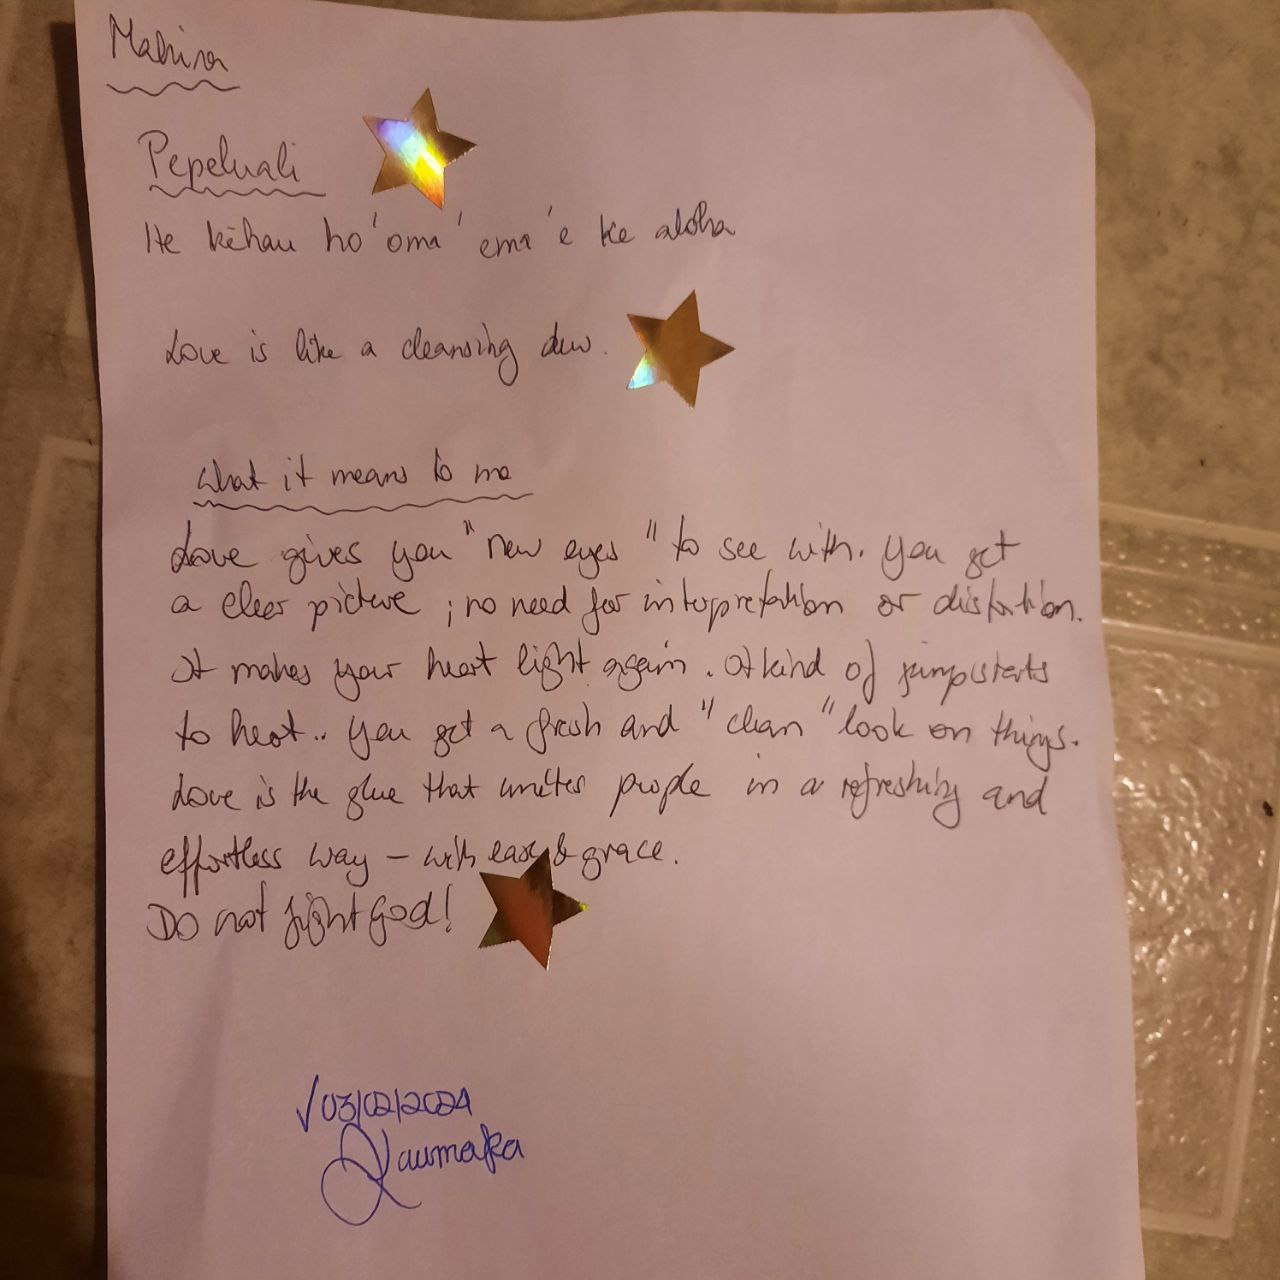 Mahina
Pepeluali
He kēhau ho'oma'ema'e ke aloha
Love is like a cleansing dew.
What it means to me
Love gives you "new eyes" to see with. You get
a clear picture ; no need for interpretation or distortion.
It makes your heart light again. It kind of jumpstarts
to heat.. You get a fresh and "clean" look on things.
Love is the glue that unites people in a refreshing and
effortless way - with ease & grace.
Do not fight God!
√03/02/2024
Kaumaka